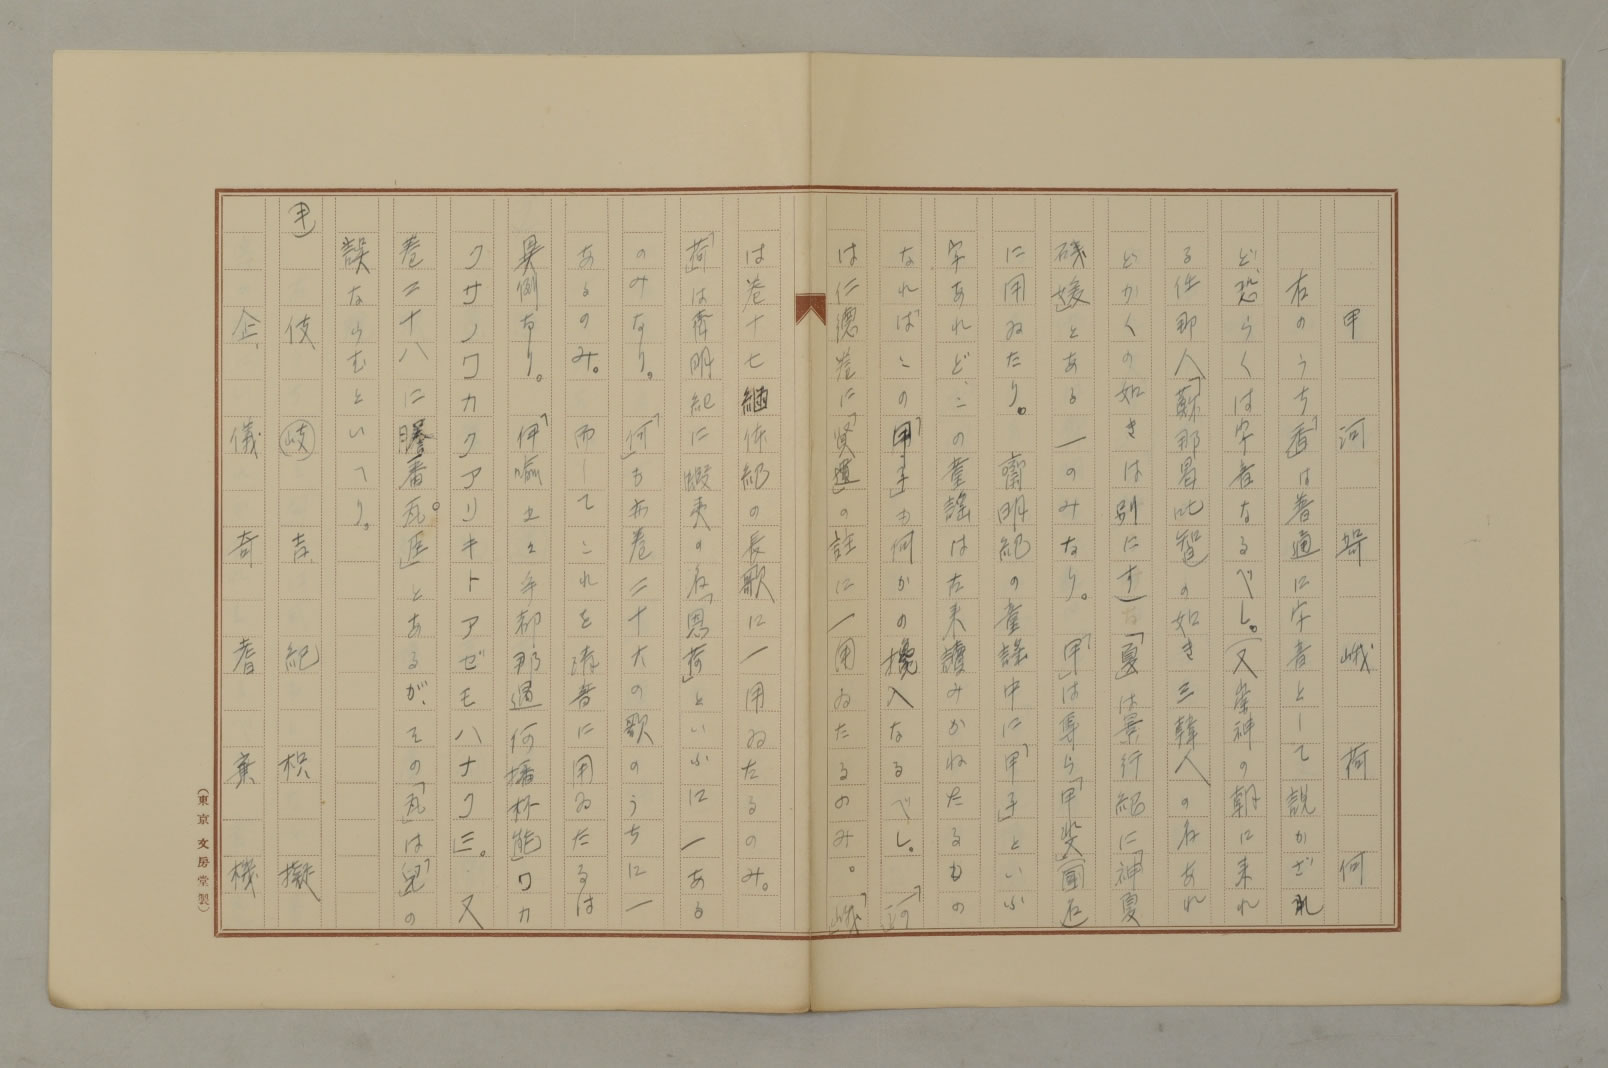 甲 河 哿 峨 荷 何
右のうち「香」は普通に字音として説かざれ
ど、恐らくは字音なるべし。(又崇神の朝に来れ
る任那人「蘇那曷叱智」の如き三韓人の名あれ
どかくの如きは別にす)「夏」は景行紀に「神夏
磯媛」とある一のみなり。「甲」は専ら「甲斐」(国名)
に用ゐたり。齋明紀の童謡中に「甲子」といふ
字あれど、この童謡は古来讀みかねたるもの
なればこの「甲子」も何かの攙入なるべし。「河」
は仁徳巻に「賢遺」の註に一用ゐたるのみ。「峨」
は巻十七継体紀の長歌に一用ゐたるのみ。
「荷」は齊明紀に蝦夷の名「恩荷」といふに一ある
のみなり。「何」も亦巻二十六の歌のうちに一
あるのみ。而してこれを清音に用ゐたるは
異例なり。「伊喩之之乎都那遇何播杯能」ワカ
クサノワカクアリキトアゼモハナクニ。又
巻二十八に膽香瓦臣。とあるが、その「瓦」は「兒」の
誤ならむといへり。
キ 伎 岐 吉 紀 枳 擬
企 儀 奇 耆 棄 機
(東京 文房堂製)